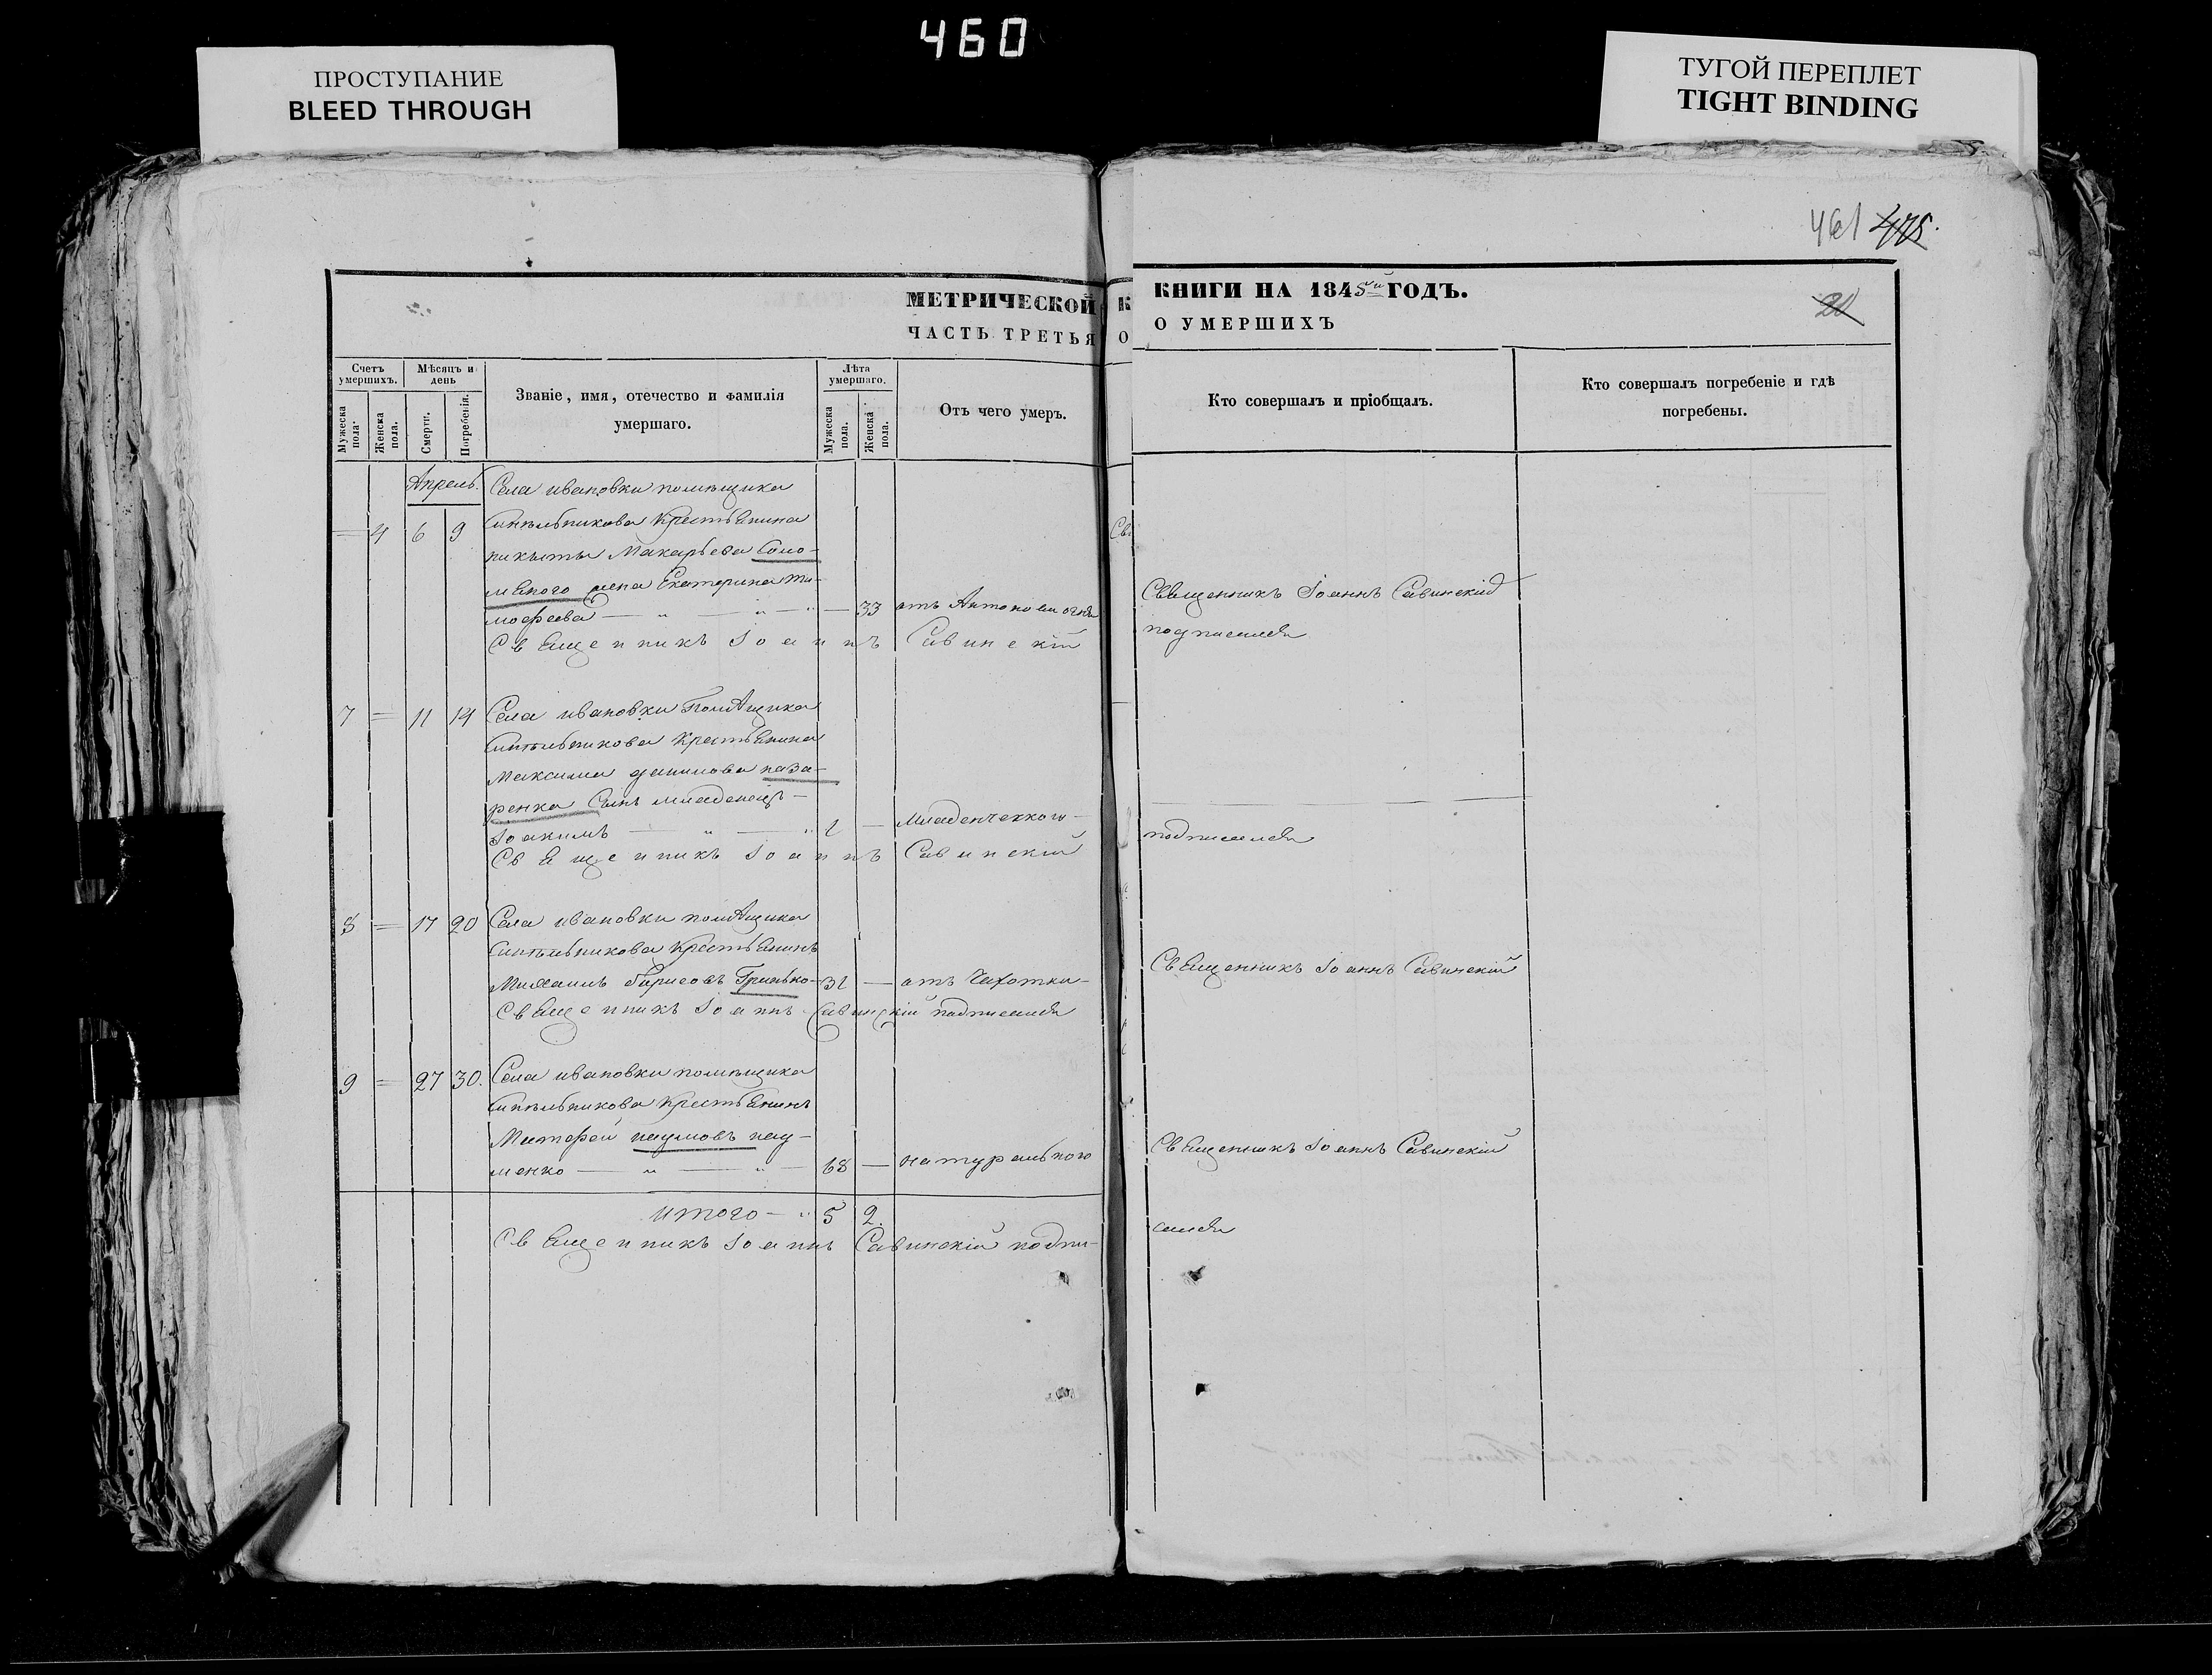 460
ПРОСТУПАНИЕ
BLEED THROUGH
ТУГОЙ ПЕРЕПЛЕТ
TIGHT BINDING
461 475.
МЕТРИЧЕСКОЙ
ЧАСТЬ ТРЕТЬЯ
Счетъ умершихъ.
Мужеска пола.
Женска пола.
Мѣсяцъ и день
Смерти.
Погребенія.
Званіе, имя, отечество и фамилія
умершаго.
Лѣта умершаго.
Мужеска пола.
Женска пола.
Отъ чего умеръ.
Апрель. Села ивановки помѣщика
— 4 6 9 Синѣльникова Крестьянина
никиты Макарьева Соло-
мяного жена Екатерина ти-
мофеева — „ — „ — 33 отъ Антонова огня
Священникъ Іоаннъ Савинскій
7 = 11 14 Села ивановки Помѣщика
Синѣльникова Крестьянина
Максима данилова наза-
ренка Сынъ младенецъ —
Іоакимъ — „ — „ 2 — Младенческого —
Священникъ Іоаннъ Савинскій
8 = 17 20 Села ивановки помѣщика
Синѣльникова Крестьянинъ
Михаилъ борисовъ Гринько — 32 — отъ Чахотки —
Священникъ Іоаннъ Савинскій подписался
9 = 27 30. Села ивановки помѣщика
Синѣльникова Крестьянинъ
наумовъ нау-
менко — „ — „ — 68 — натурального
итого — „ 5 2.
Священникъ Іоаннъ Савинскій подпи-
К
О
Свя
КНИГИ НА 1845й ГОДЪ.
О УМЕРШИХЪ
20
Кто совершалъ и пріобщалъ.
Кто совершалъ погребеніе и гдѣ
погребены.
Священникъ Іоаннъ Савинскій
подписался
подписался
Священникъ Іоаннъ Савинскій
Священникъ Іоаннъ Савинскій
сался